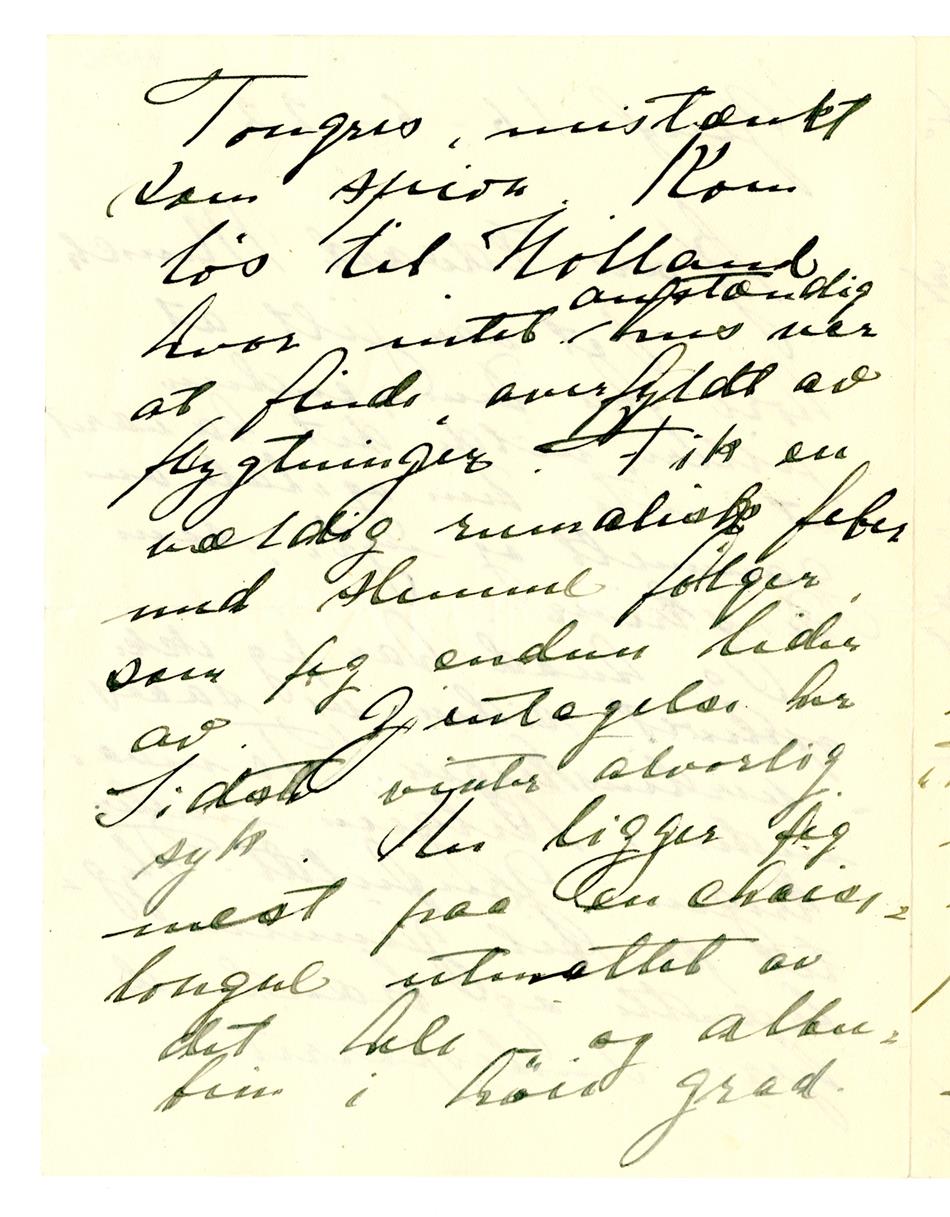 Tongres, mistænkt
som spion. Kom
løs til Holland
anstændig
hvor intet hus var
at finde, overfyldt av
flygtninger. Fik en
vældig rumatisk feber
med slemme følger,
som jeg endnu lider
av. Gjentagelse her
Sidste vinter alvorlig
syk. Nu ligger jeg
mest paa en chaise-
longue utmattet av
det hele – og albu-
min i höie grad.